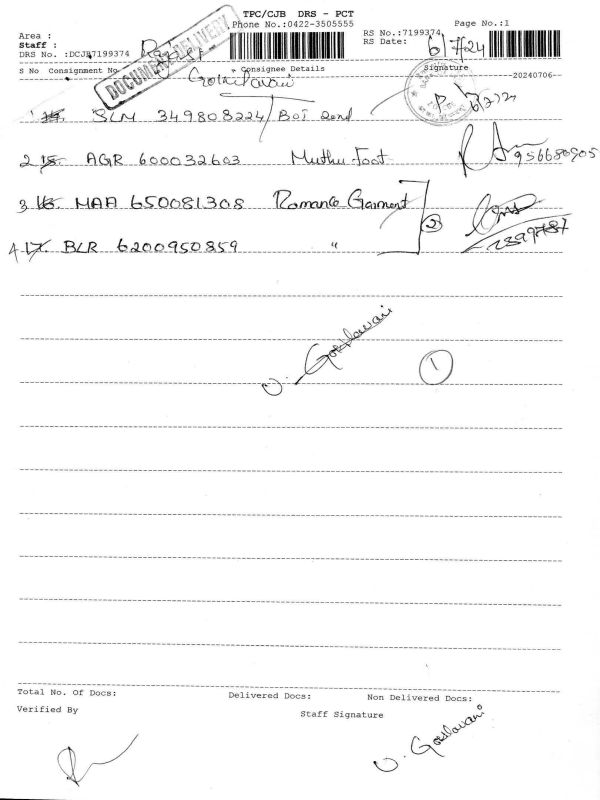 TPC/CJB DRS - PCT
Phone No.:0422-3505555
Page No.:1
Area :
RS No.:7199374
Staff :
RS Date: 6/7/24
DRS No. :DCJB7199374
DOCUMENT DELIVERY
S No Consignment No Consignee Details Signature
20240706
6/7/24
1 14. SLM 349808224 BOI 2nd
2 15. AGR 600032603 Muthu Foot
956680905
3 16. MAA 650081308 Romance Garment
2
4 17. BLR 6200950859 "
1
Total No. Of Docs: Delivered Docs: Non Delivered Docs:
Verified By Staff Signature